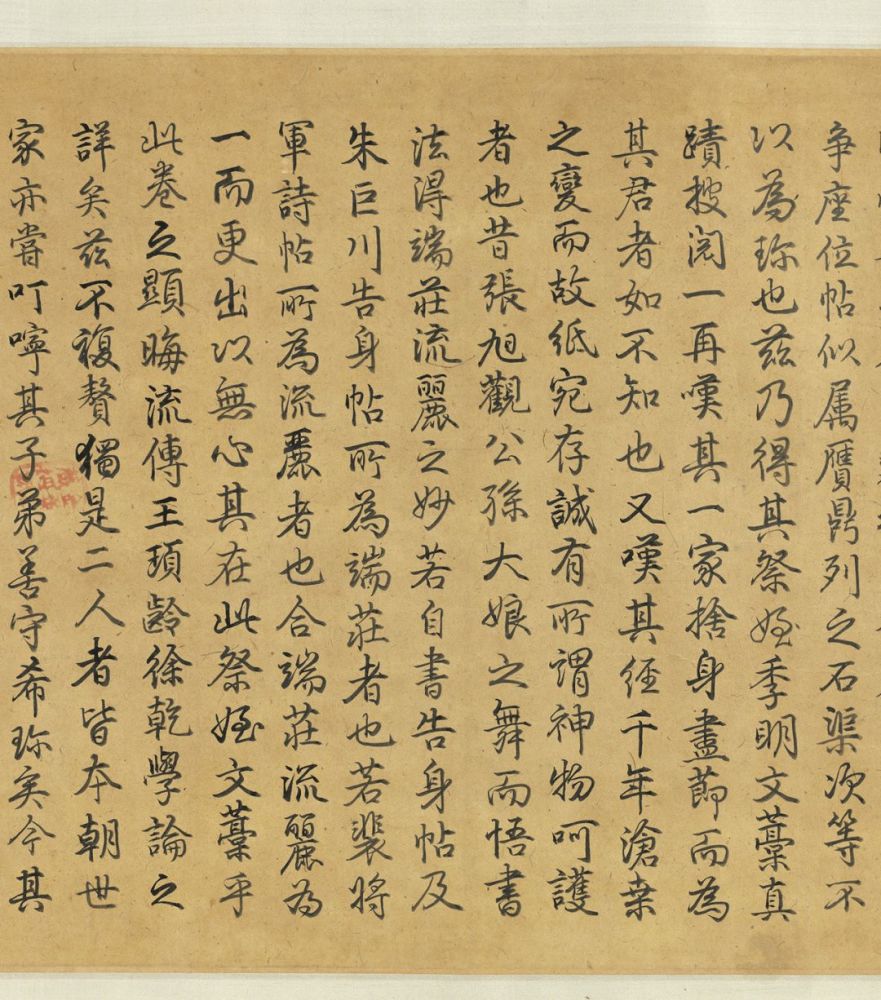 争座位帖似属贋鼎列之石渠次等不
以為珎也兹乃得其祭姪季明文藁真
蹟披閱一再嘆其一家捨身盡節而為
其君者如不知也又嘆其経千年滄桒
之變而故紙宛存誠有所謂神物呵護
者也昔張旭觀公孫大娘之舞而悟書
法得端莊流麗之妙若自書告身帖及
朱巨川告身帖所為端莊者也若裴將
軍詩帖所為流麗者也合端莊流麗為
一而更出以無心其在此祭姪文藁乎
此卷之顯晦流傳王頊齡徐乾學論之
詳矣兹不複贅獨是二人者皆本朝世
家亦嘗叮嚀其子弟善守希珎矣今其